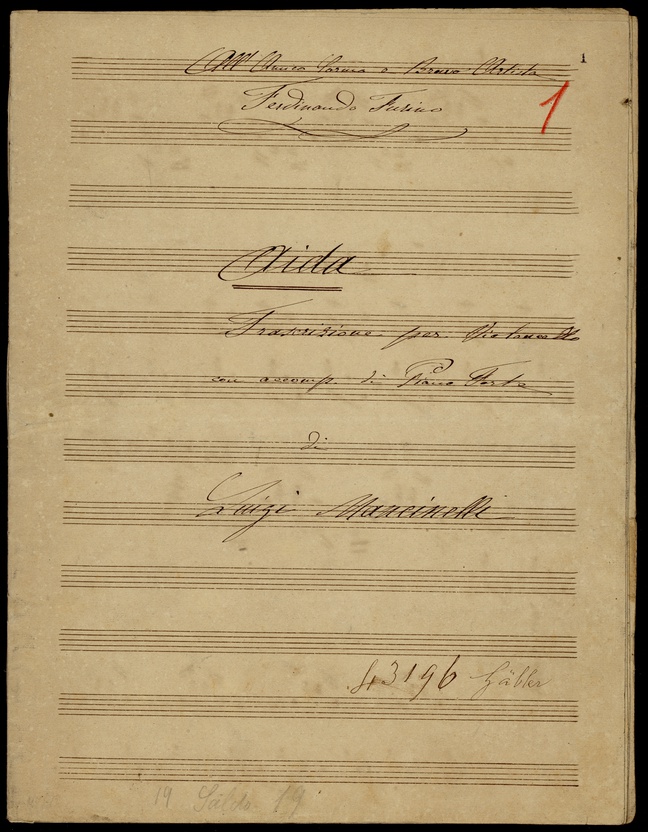 1
All' Amico e Bravo Artista
Ferdinando Furino
1
Aida
Trascrizione per Violoncello
con accomp. di Piano Forte
di
Luigi Mancinelli
43196 Gäbler
19 19